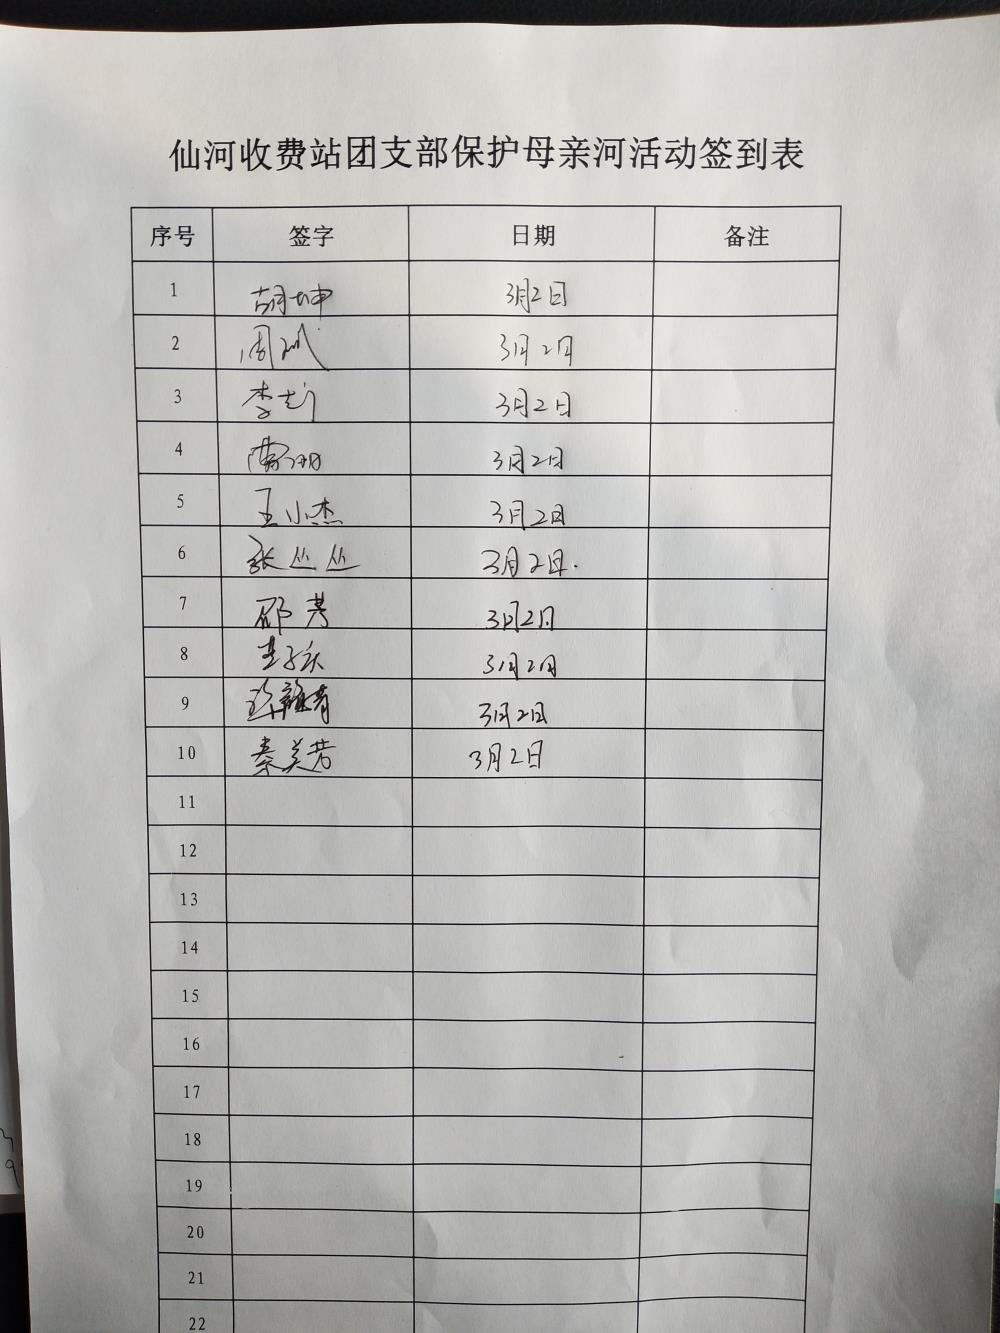 仙河收费站团支部保护母亲河活动签到表
序号 签字 日期 备注
1 胡坤 3月2日
2 周斌 3月2日
3 李彭 3月2日
4 3月2日
5 王小杰 3月2日
6 张丛丛 3月2日.
7 邵芳 3月2日
8 李子庆 3月2日
9 3月2日
10 秦美芳 3月2日
11
12
13
14
15
16
17
18
19
20
21
22